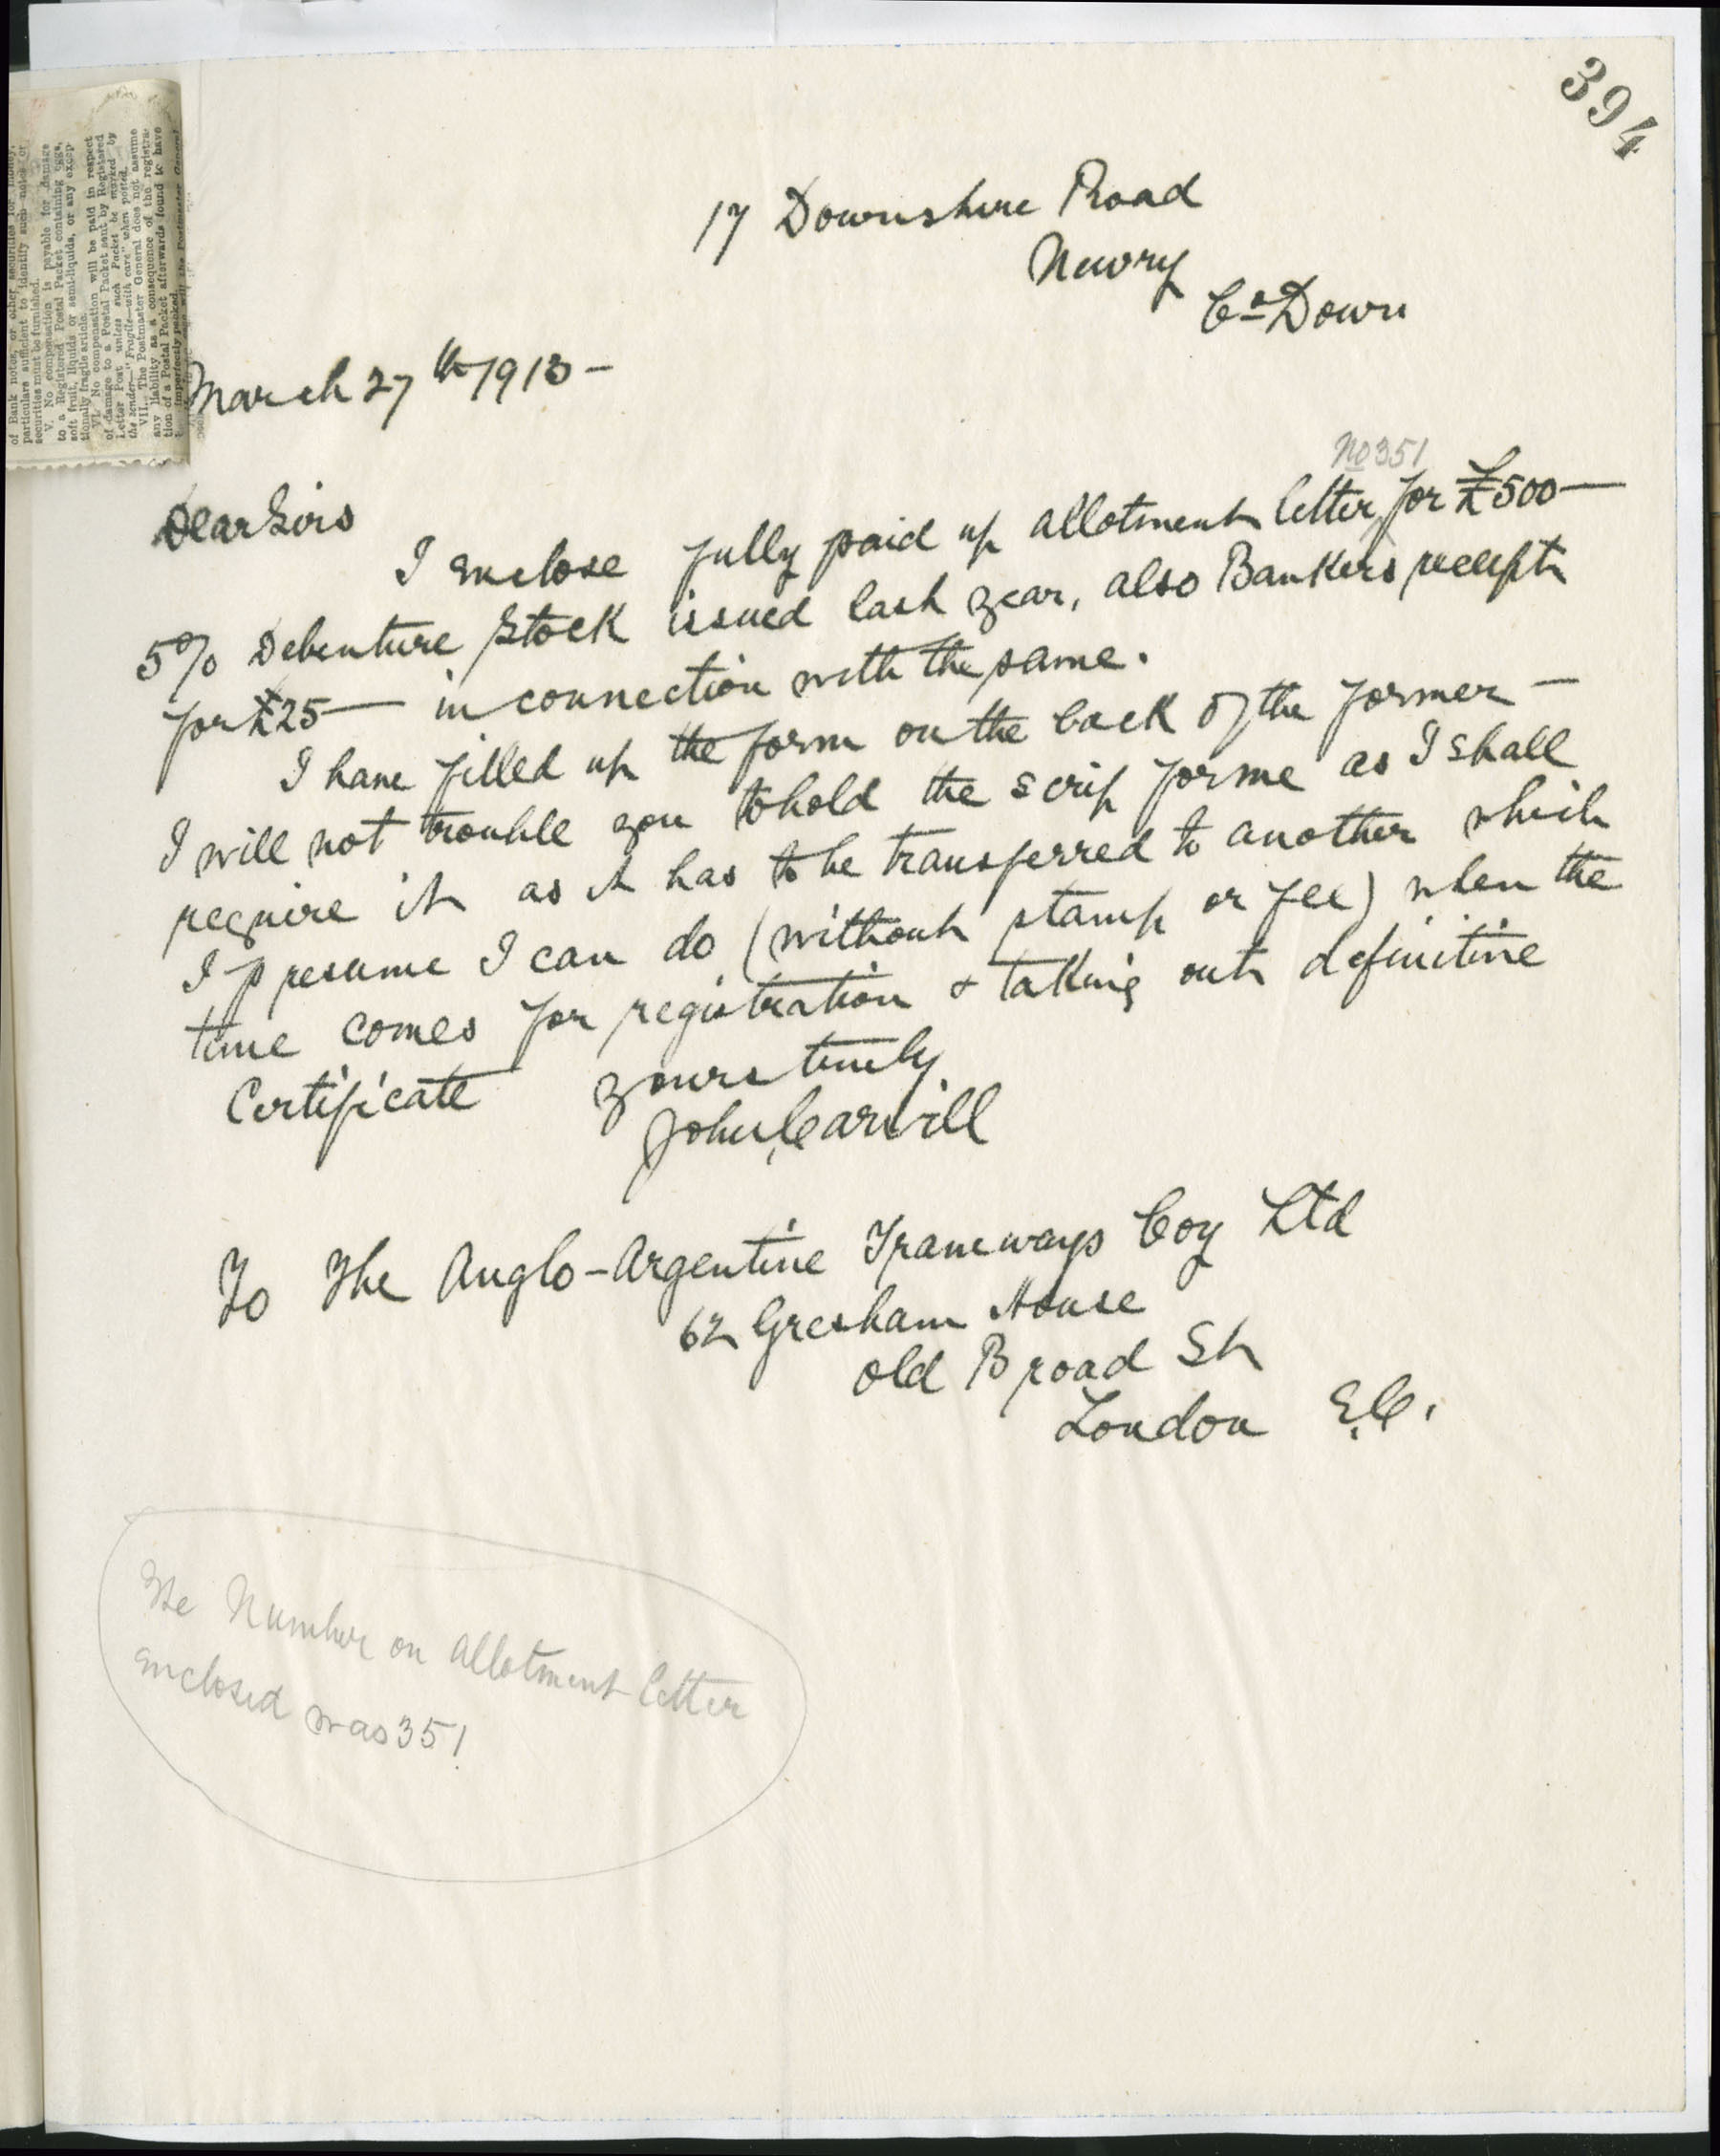 394
of Bank notes, or other securities for money,
particulars sufficient to identify such notes or
securities must be furnished.
V. No compensation is payable for damage
to a Registered Postal Packet containing eggs,
soft fruit, liquids or semi-liquids, or any excep-
tionally fragile article.
VI. No compensation will be paid in respect
of damage to a Postal Packet sent by Registered
Letter Post unless such Packet be marked by
the sender—"Fragile—with care" when posted.
VII. The Postmaster General does not assume
any liability as a consequence of the registra-
tion of a Postal Packet afterwards found to have
imperfectly packed.
the Postmaster General
17 Downshire Road
Newry
Co Down
March 27th 1913 –
Dear Sirs
No 351
I enclose fully paid up allotment letter for £500 —
5% Debenture Stock issued last year, also Bankers receipt
for £25 — in connection with the same.
I have filled up the form on the back of the former —
I will not trouble you to hold the scrip for me as I shall
require it as it has to be transferred to another which
I presume I can do (without stamp or fee) when the
time comes for registration & taking out definitive
Certificate
yours truly
John Carvill
To The Anglo-Argentine Tramways Coy Ltd
62 Gresham House
Old Broad St
London E.C.
The Number on allotment letter
enclosed was 351